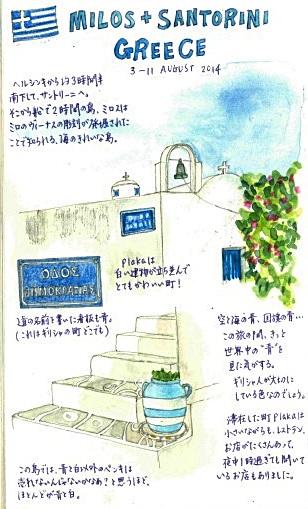 MILOS + SANTORINI
GREECE
3-11 AUGUST 2014
ヘルシンキから約3時間半
南下して、サントリーニへ。
そこから船で2時間の島、ミロスは
ミロのヴィーナスの彫刻が発掘された
ことで知られる、海のきれいな島。
ΟΔΟΣ
ΔΗΜΟΚΡΑΤΙΑΣ
Plakaは
白い建物が立ち並んで
とてもかわいい町!
道の名前を書いた看板も青。
(これはギリシャの町どこでも)
空と海の青、国旗の青…
この旅の間、きっと
世界中の“青”を
見た気がする。
ギリシャ人が大切に
している色なのでしょう。
滞在した町Plakaは
小さいながらも、レストラン、
お店がたくさんあって、
夜中1時過ぎても開いて
いるお店もありました。
この島では、青と白以外のペンキは
売れないんじゃないかなぁ?と思うほど、
ほとんどが青と白。